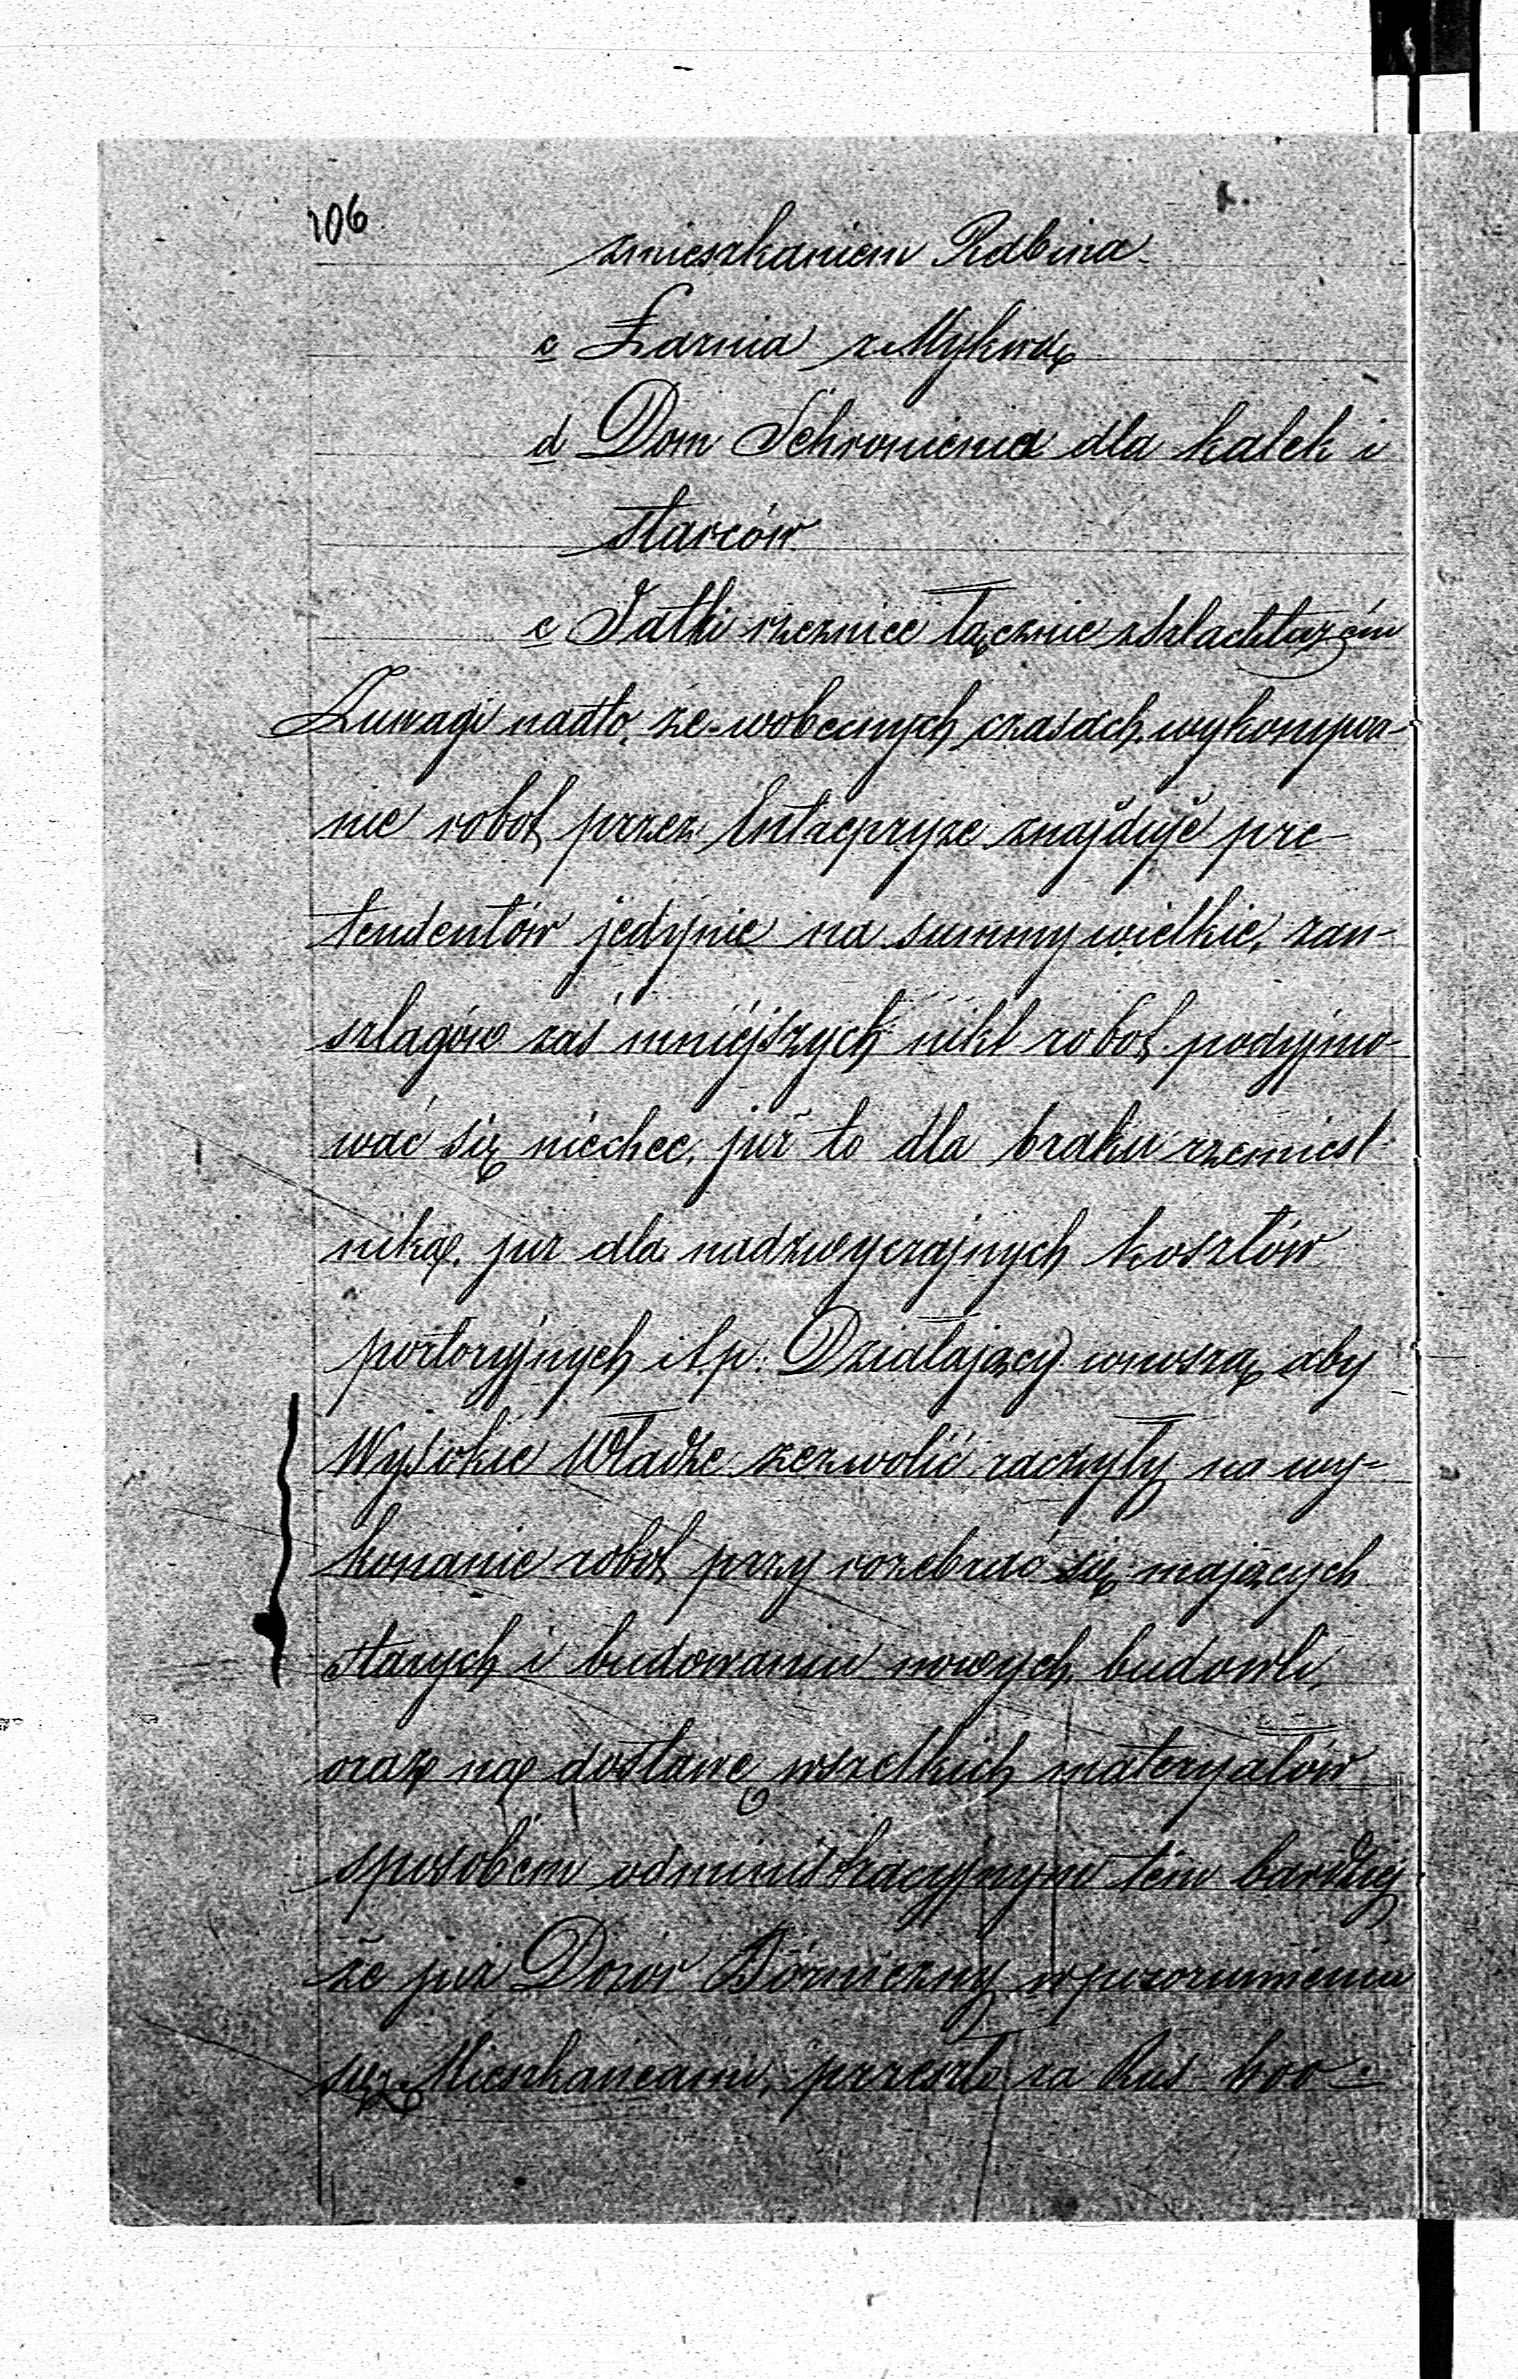 106
zmieszkaniem Rabina
c Łaznia z Mykwą
d Dom Schronienia dla kalek i
starców
e Jatki rzeznice łącznie zszlachtuzem
Zuwagi nadto, że wobecnych czasach wykonywa-
nie robot przez Entrepryze znajduje pre-
tendentów jedynie na summy wielkie, zan-
szlagów zaś mniejszych nikt robot podejmo-
wać się niechce, już to dla braku rzemieśl
nika, już dla nadzwyczajnych kosztów
portoryjnych i t. p. Działający wnoszą aby
Wysokie Władze zezwolić raczyły na wy-
konanie robot przy rozebrać się mających
starych i budowaniu nowych budowli,
oraz na dostawę wszelkich materyałów
sposobem administracyjnym tém bardziej
że już Dozór Bóżniczny w porozumieniu
się z Mieszkańcami, przeszło za Rus.